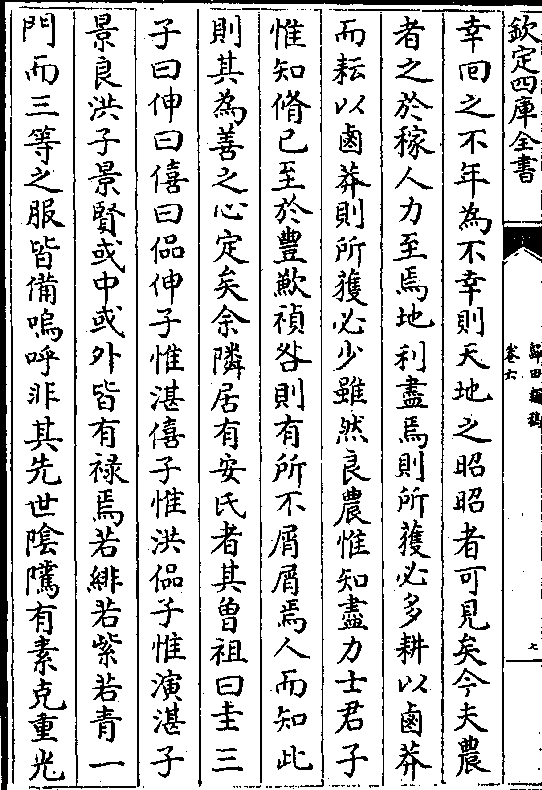 欽定四庫全書
歸田類稿
卷六
七
幸回之不年為不幸則天地之昭昭者可見矣今夫農
者之於稼人力至焉地利盡焉則所獲必多耕以鹵莽
而耘以鹵莽則所獲必少雖然良農惟知盡力士君子
惟知脩己至於豐歉禎咎則有所不屑屑焉人而知此
則其為善之心定矣余隣居有安氏者其曽祖曰圭三
子曰伸曰僖曰偘伸子惟湛僖子惟洪偘子惟演湛子
景良洪子景賢或中或外皆有禄焉若緋若紫若青一
門而三等之服皆備嗚呼非其先世隂隲有素克重光